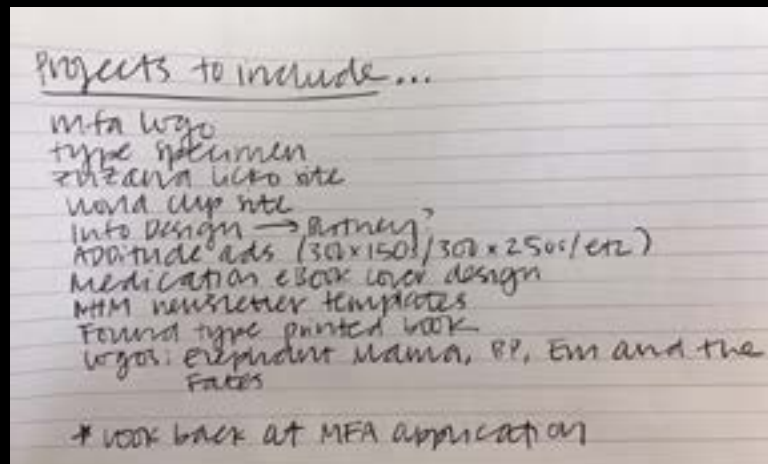 Projects to include...
mfa logo
type specimen
zuzana licko site
world cup site
Info Design → Britney?
ADDitude ads (300x150s/300x250s/etc)
Medication eBook cover design
newsletter templates
Found type printed book
logos: elephant mama, BP, Em and the
Fates
* look back at MFA application